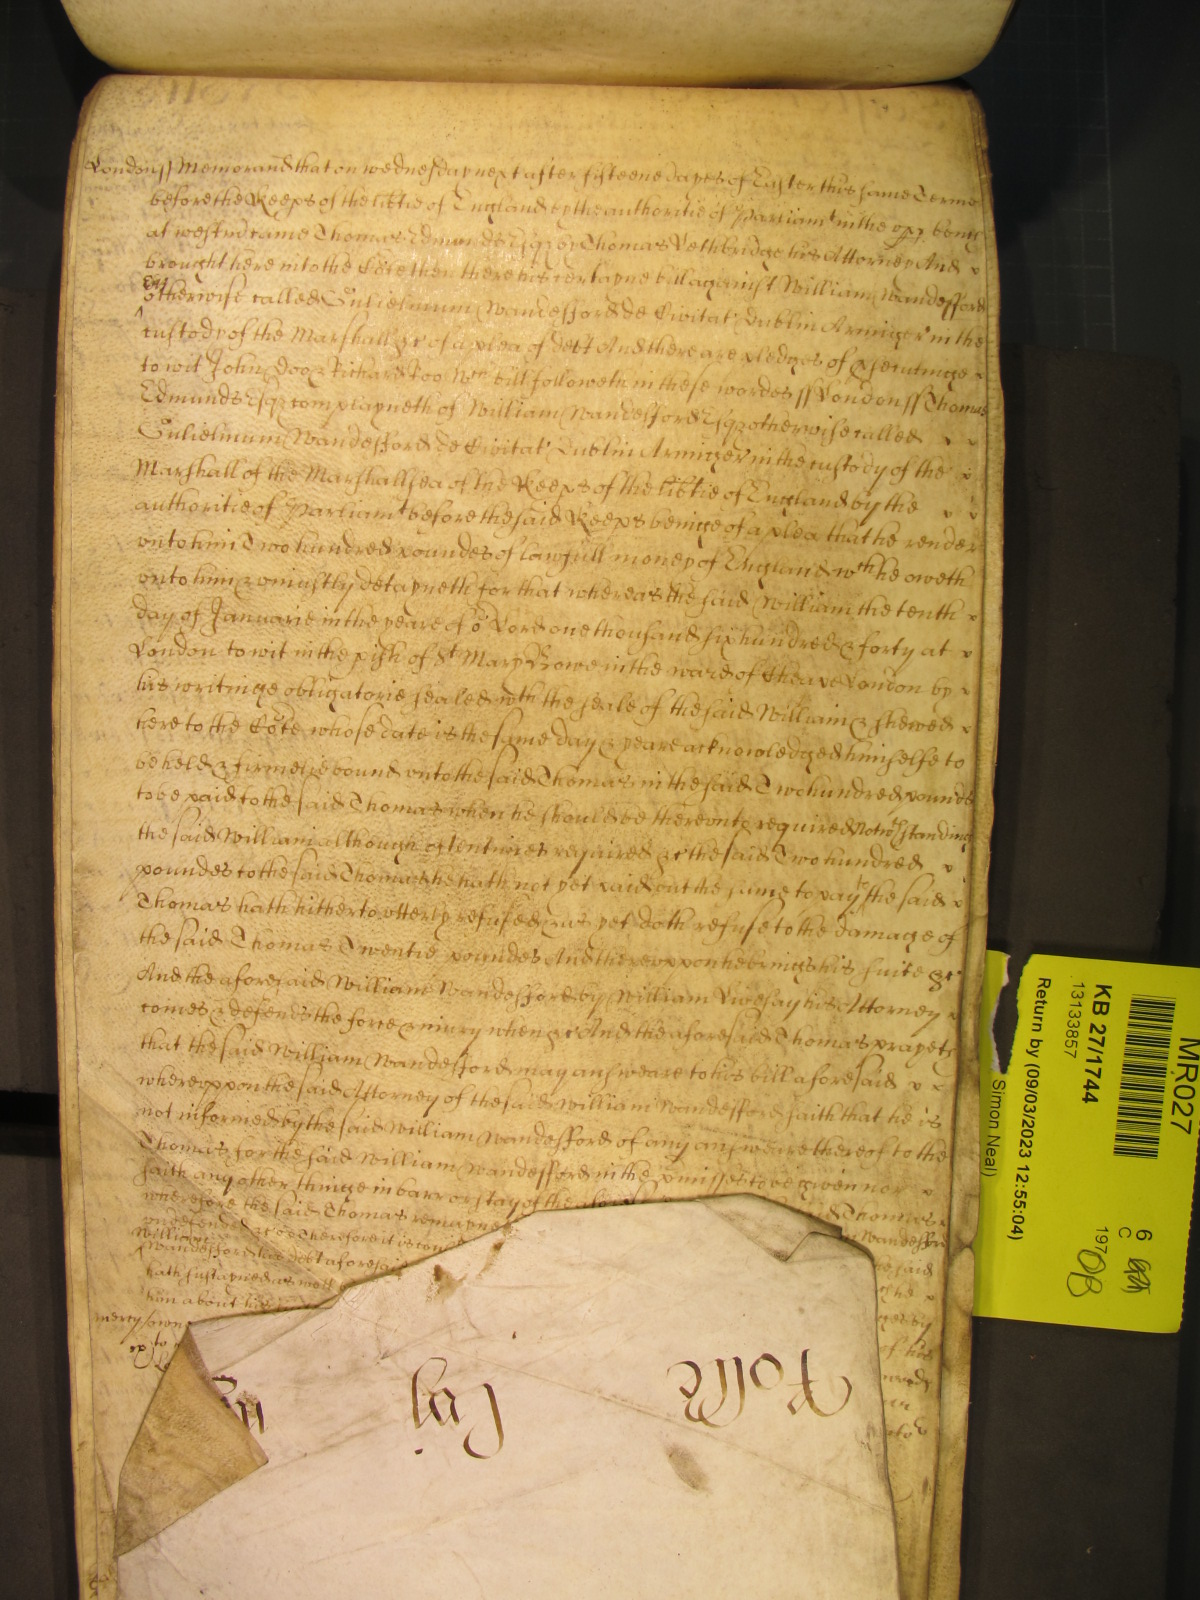 London ss Memorand that on wednesday next after fifteene dayes of Easter this same Terme
before the Keeps of the libtie of England by the authoritie of Parliamt in the upp bench
at westm came Thomas Edmunds Esqz by Thomas Lethbridge his Attorney And
brought here into the Cote then there his certayne bill against William Wandesford
Esqz
otherwise called Gulielmum Wandesford de Civitat Dublin Armiger in the
custody of the Marshall &c of a plea of debt And there are pledges of psecutinge
to wit John Doo & Richard Roo Wch bill followeth in these wordes ss London ss Thomas
Edmunds Esqz complayneth of William Wandesford Esqz otherwise called
Gulielmum Wandesford de Civitat Dublin Armiger in the custody of the
Marshall of the Marshallsea of the Keeps of the libtie of England by the
authoritie of Parliamt before the said Keeps beinge of a plea that he render
unto him Two hundred poundes of lawfull money of England wch he oweth
unto him & uniustly detayneth for that whereas the said William the tenth
day of Januarie in the yeare of or Lord one thousand six hundred & forty at
London to wit in the pish of St Mary Bowe in the ward of Cheape London by
his writinge obligatorie sealed wth the seale of the said William & shewed
here to the Cote whose date is the same day & yeare acknowledged himselfe to
be held & firmelie bound unto the said Thomas in the said Two hundred pounds
to be paid to the said Thomas when he should be thereunto required Notwthstanding
the said William although oftentimes required &c the said Two hundred
poundes to the said Thomas he hath not yet paid but the same to pay to the said
Thomas hath hitherto utterly refused & as yet doth refuse to the damage of
the said Thomas Twentie poundes And thereuppon he brings his suite &c
And the aforesaid William Wandesford by William Livesay his Attorney
comes & defends the force & iniury when &c And the aforesaid Thomas prayeth
that the said William Wandesford may answeare to his bill aforesaid
whereuppon the said Attorney of the said William Wandesford saith that he is
not informed by the said William Wandesford of any answeare thereof to the
Thomas for the said William Wandesford in the pmisses to be given nor
saith any other thinge in barr or stay of the Thomas
wherefore the said Thomas remaynes Wandesford
undefended &c Therefore it is said
William
Wandesford his debt aforesaid the
hath sustayned as well by
him about his of his
mercy
to
Rolle
MR027
KB 27/1744
13133857
Return by (09/03/2023 12:55:04)
Simon Neal)
6
C
197